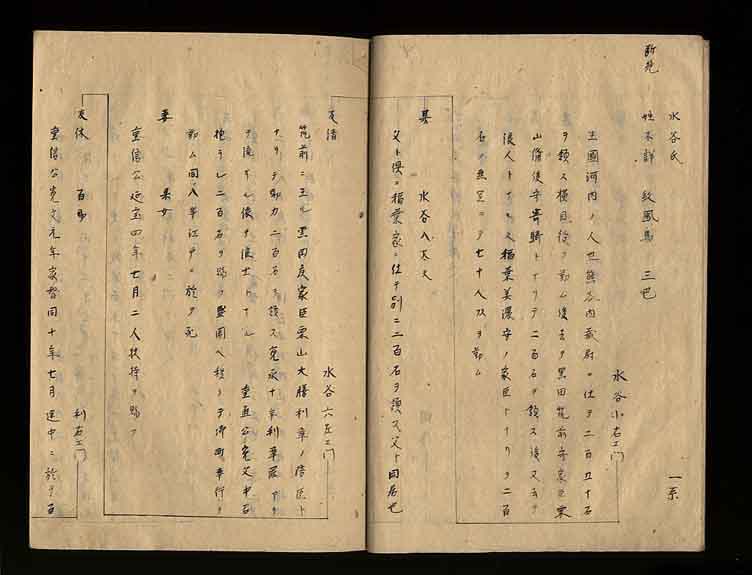 水谷氏 一系
姓不詳 紋鳳鳥 三巴
水谷小右エ門
生國河内ノ人也熊谷内蔵尉ニ仕ヲ二百五十石
ヲ領ス横目役ヲ勤ム後去テ黒田筑前守家臣栗
山備後守寄騎トナリテ二百石ヲ領ス後又去テ
浪人トナル又稲葉美濃守ノ家臣トナリテ二百
石ノ無足ニテ七十人
某 水谷八太夫
父ト倶ニ稲葉家ニ仕テ別ニ二百石ヲ領ス父ト同居也
友清 水谷六左エ門
筑前ニ生ル黒田侯家臣栗山大膳利章ノ陪臣ト
ナリテ助力二百石ヲ領ス寛永十年利章罪アリ
テ後 浪士トナル 重直公寛文中召
抱ラレ二百石ヲ賜フ盛岡ヘ移リテ御町奉行ヲ
勤ム同八年江戸ニ於テ死
妻 某女
重信公延宝四年七月二人扶持ヲ賜フ
友休 百助 利右エ門
重信公寛文元年家督同十年七月途中ニ於テ百